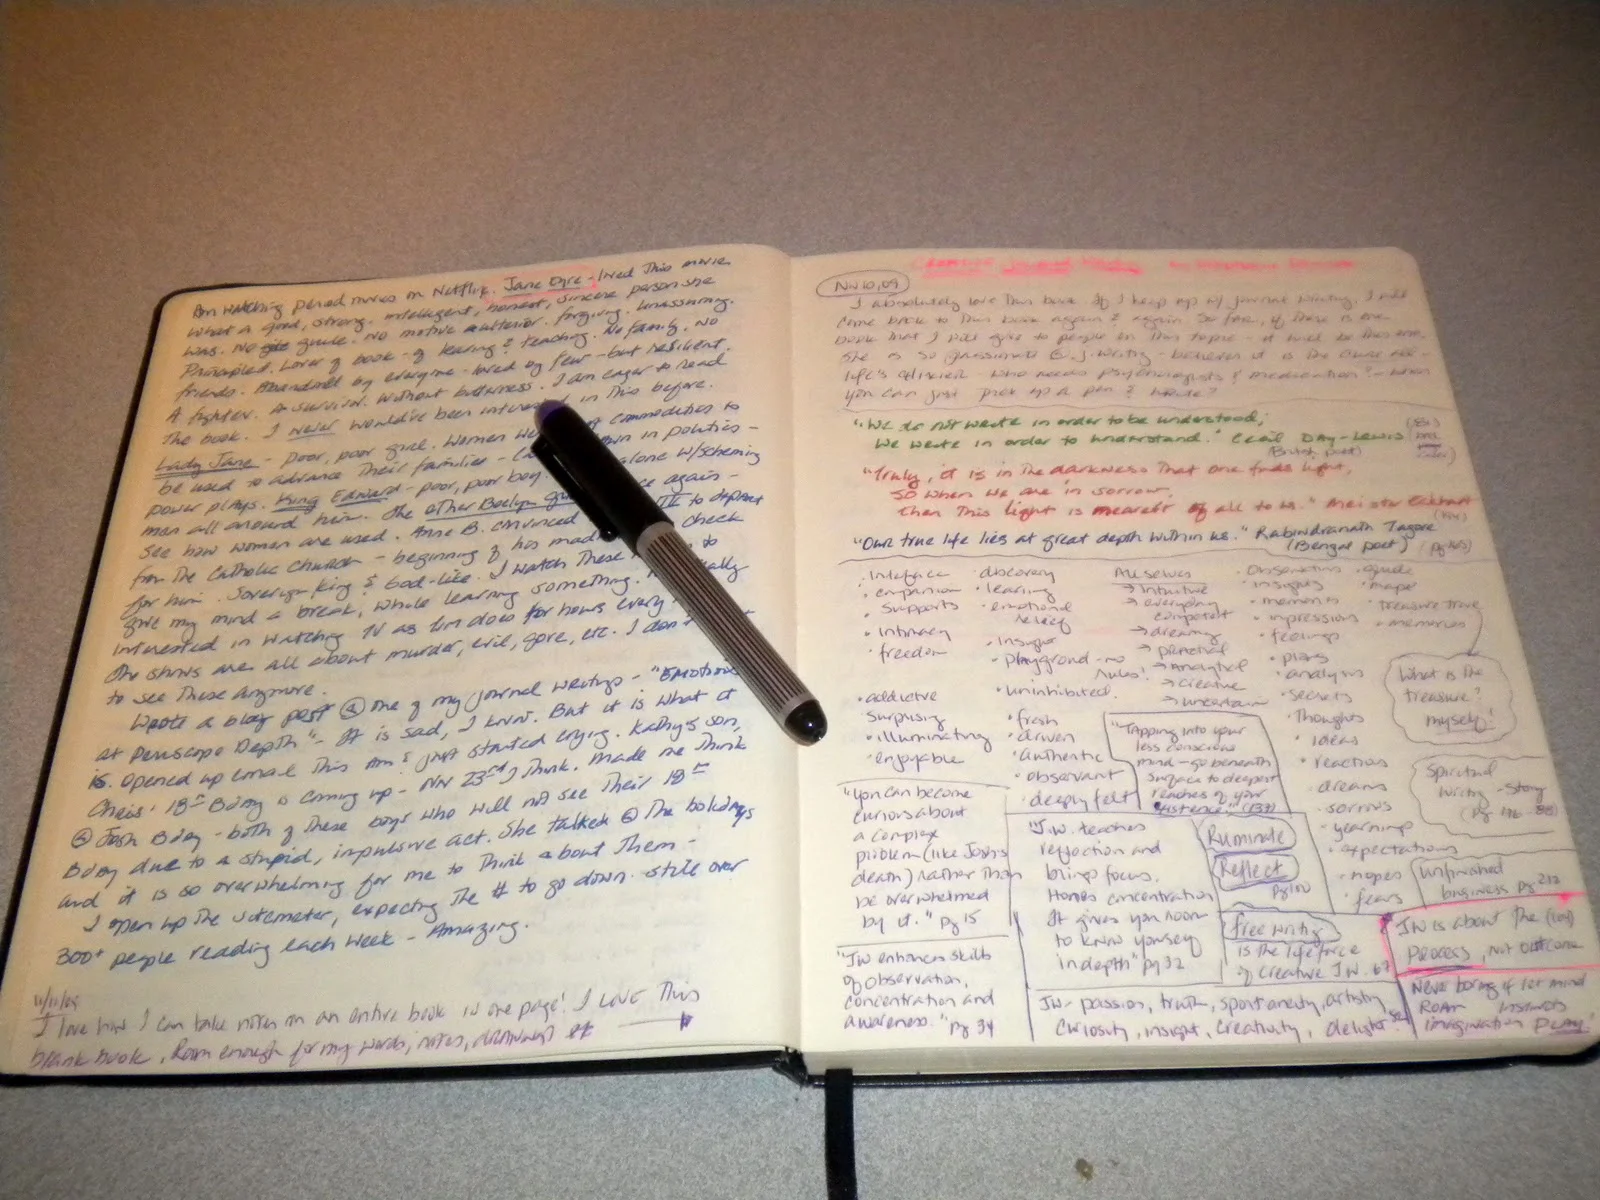 Am watching period movies on Netflix. Jane Eyre - loved this movie
What a good, strong, intelligent, honest, sincere person she
was. No guile. No motive ulterior. forgiving. Unassuming.
Principled. Lover of book - of learning & teaching. No family. No
friends. Abandoned by everyone - loved by few - but resilient.
A fighter. A survivor. Without bitterness. I am eager to read
The book. I never would've been interested in this before.
Lady Jane - poor, poor girl. Women commodities to
be used to advance their families - in politics -
power plays. King Edward - poor, poor boy. alone w/ scheming
men all around him. The other Boelyn again -
see how women are used. Anne B. convinced to depart
from the Catholic Church - beginning of his check
for him. Sovereign King & God-like. I watch these to
give my mind a break, while learning something.
interested in watching TV as Jim does for hours every
The shows are all about murder, evil, gore, etc. I don't
to see these anymore.
Wrote a blog post @ one of my journal writings - "Emotions
at Periscope Depth" - It is sad, I know. But it is what it
is. Opened up email this am & just started crying. Kathy's son,
Chris' 18th Bday is coming up - Nov 23rd I think. Made me think
@ Josh Bday - both of these boys who will not see their 18th
Bday due to a stupid, impulsive act. She talked @ the holidays
and it is so overwhelming for me to think about them -
I open up the sitemeter, expecting the # to go down. still over
300+ people reading each week - Amazing.
11/11/09
I love how I can take notes on an entire book in one page! I LOVE this
blank book. Room enough for my words, notes, drawings
Nov 10, 09
I absolutely love this book. If I keep up w/ journal writing, I will
come back to this book again & again. So far, if there is one
book that I will give to people on this topic - it will be this one.
She is so passionate @ J. Writing - believes it is the cure all -
life's elixier - who needs psychologists & medication? - when
you can just pick up a pen & write?
"We do not write in order to be understood;
We write in order to understand." Cecil Day-Lewis
(British poet)
"Truly, it is in the darkness that one finds light,
so when we are in sorrow,
then this light is nearest of all to us." Meister Eckhart
"Our true life lies at great depth within us." Rabindranath Tagore
(Bengal poet)
companion
supports
• intimacy
• freedom
• addictive
surprising
• illuminating
• enjoyable
• discovery
• learning
• emotional
relief
• insight
• playground - no
rules!
• uninhibited
• fresh
• driven
• authentic
• observant
• deeply felt
All selves
→ intuitive
→ everyday
competent
→ dreamy
→ practical
→ analytical
→ creative
→ uncertain
• insights
• memories
• impressions
• feelings
• plans
• analysis
• secrets
• thoughts
• ideas
• reactions
• dreams
• sorrows
• yearnings
• expectations
• hopes
• fears
• guide
• maps
• treasure trove
• memories
What is the
treasure?
myself!
"Tapping into your
less conscious
mind - go beneath
surface to deepest
reaches of your
existence."
Spiritual
Writing - Story
"You can become
curious about
a complex
problem (like Josh's
death) rather than
be overwhelmed
by it." pg 15
"J.W. teaches
reflection and
brings focus.
Hones concentration
It gives you room
to know yourself
in depth" pg 32
Ruminate
Reflect
pg 100
free writing
is the life force
of creative J.W. 67
unfinished
business pg 212
JW is about the (104)
PROCESS, not outcome
"JW enhances skills
of observation,
concentration and
awareness." pg 34
JW - passion, truth, spontaneity, artistry
curiosity, insight, creativity, delight
Never boring if let mind
ROAM
imagination PLAY!